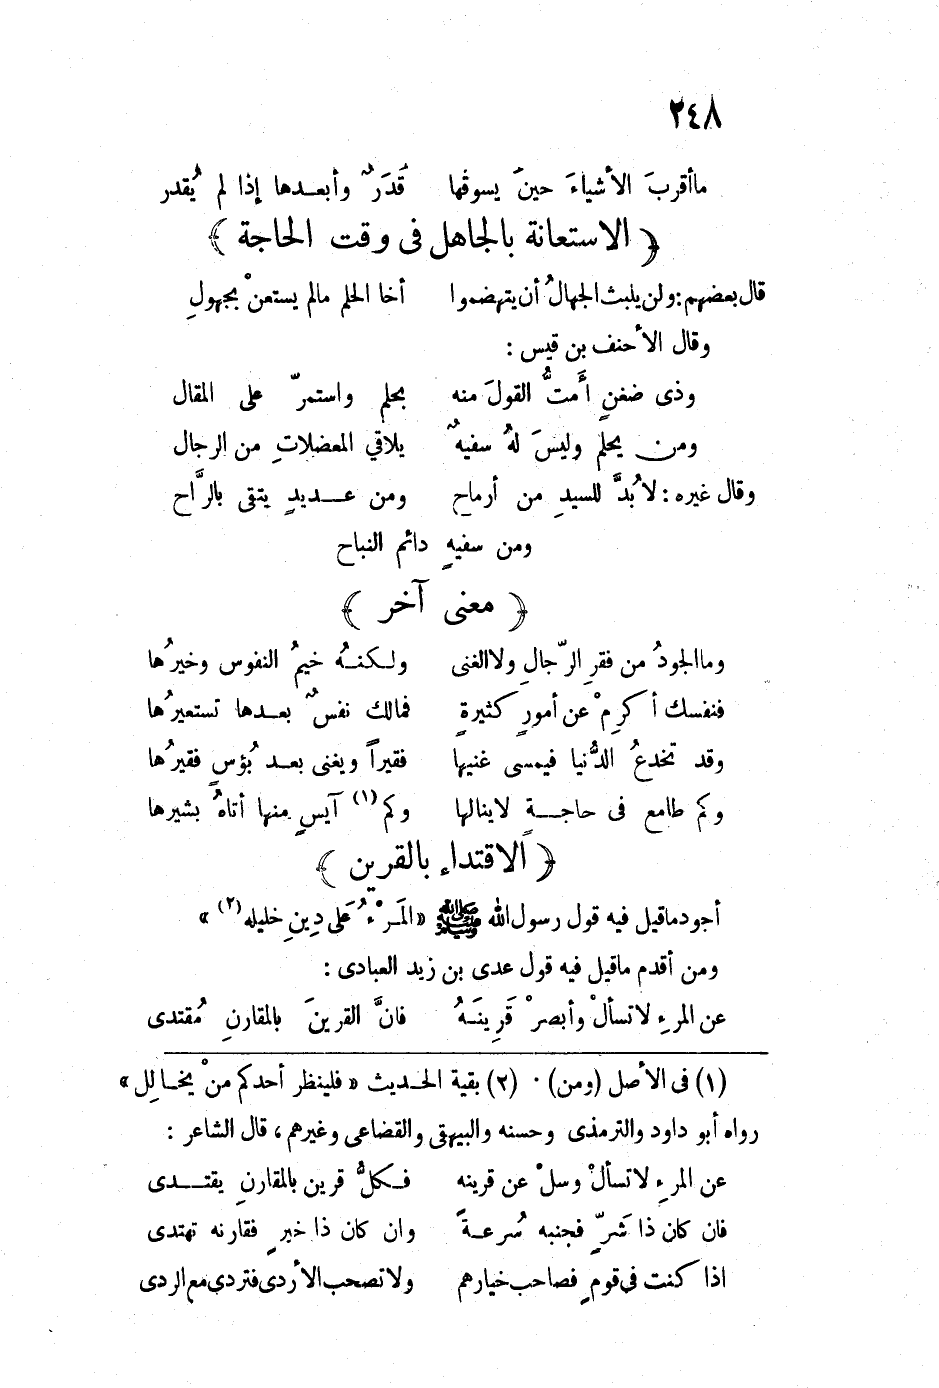 ٢٤٨
ماأقربَ الأشياءَ حينَ يسوقُها قَدَرٌ وأبعدها إذا لم يُقدر
﴿ الاستعانة بالجاهل فى وقت الحاجة ﴾
قال بعضهم: ولن يلبث الجهالُ أن يتهضموا أخا الحلم مالم يستعنْ بجهولِ
وقال الأحنف بن قيس :
وذى ضغنٍ أَمتُّ القولَ منه بحلم واستمرّ على المقال
ومن يحلم وليسَ لهُ سفيهٌ يلاقي المعضلاتِ من الرجال
وقال غيره : لابُدَّ للسيدِ من أرماح ومن عديدٍ يتقى بالرَّاح
ومن سفيهٍ دائم النباح
﴿ معنى آخر ﴾
وماالجودُ من فقرِ الرّجالِ ولاالغنى ولكنهُ خيمُ النفوس وخيرُها
فنفسك أكرِمْ عن أمورٍ كثيرةٍ فمالك نفسٌ بعدها تستعيرُها
وقد تخدعُ الدُّنيا فيمسى غنيها فقيراً ويغنى بعد بُؤسٍ فقيرُها
وكم طامع فى حاجةٍ لاينالها وكم (١) آيسٍ منها أتاهُ بشيرها
﴿ الاقتداء بالقرين ﴾
أجود ماقيل فيه قول رسول الله ﷺ «المَرْءُ عَلَى دِينِ خليله (٢) »
ومن أقدم ماقيل فيه قول عدى بن زيد العبادى :
عن المرءِ لاتسألْ وأبصرْ قَرِينَهُ فانَّ القرينَ بالمقارنِ مُقتدى
(١) فى الأصل (ومن) . (٢) بقية الحديث « فلينظر أحدكم منْ يخالِل »
رواه أبو داود والترمذى وحسنه والبيهقى والقضاعى وغيرهم ، قال الشاعر :
عن المرءِ لاتسألْ وسلْ عن قرينه فكلُّ قرين بالمقارنِ يقتدى
فان كان ذا شَرٍّ فجنبه سُرعةً وان كان ذا خيرٍ فقارنه تهتدى
اذا كنت فى قومٍ فصاحب خيارهم ولاتصحب الأردى فتردى مع الردى